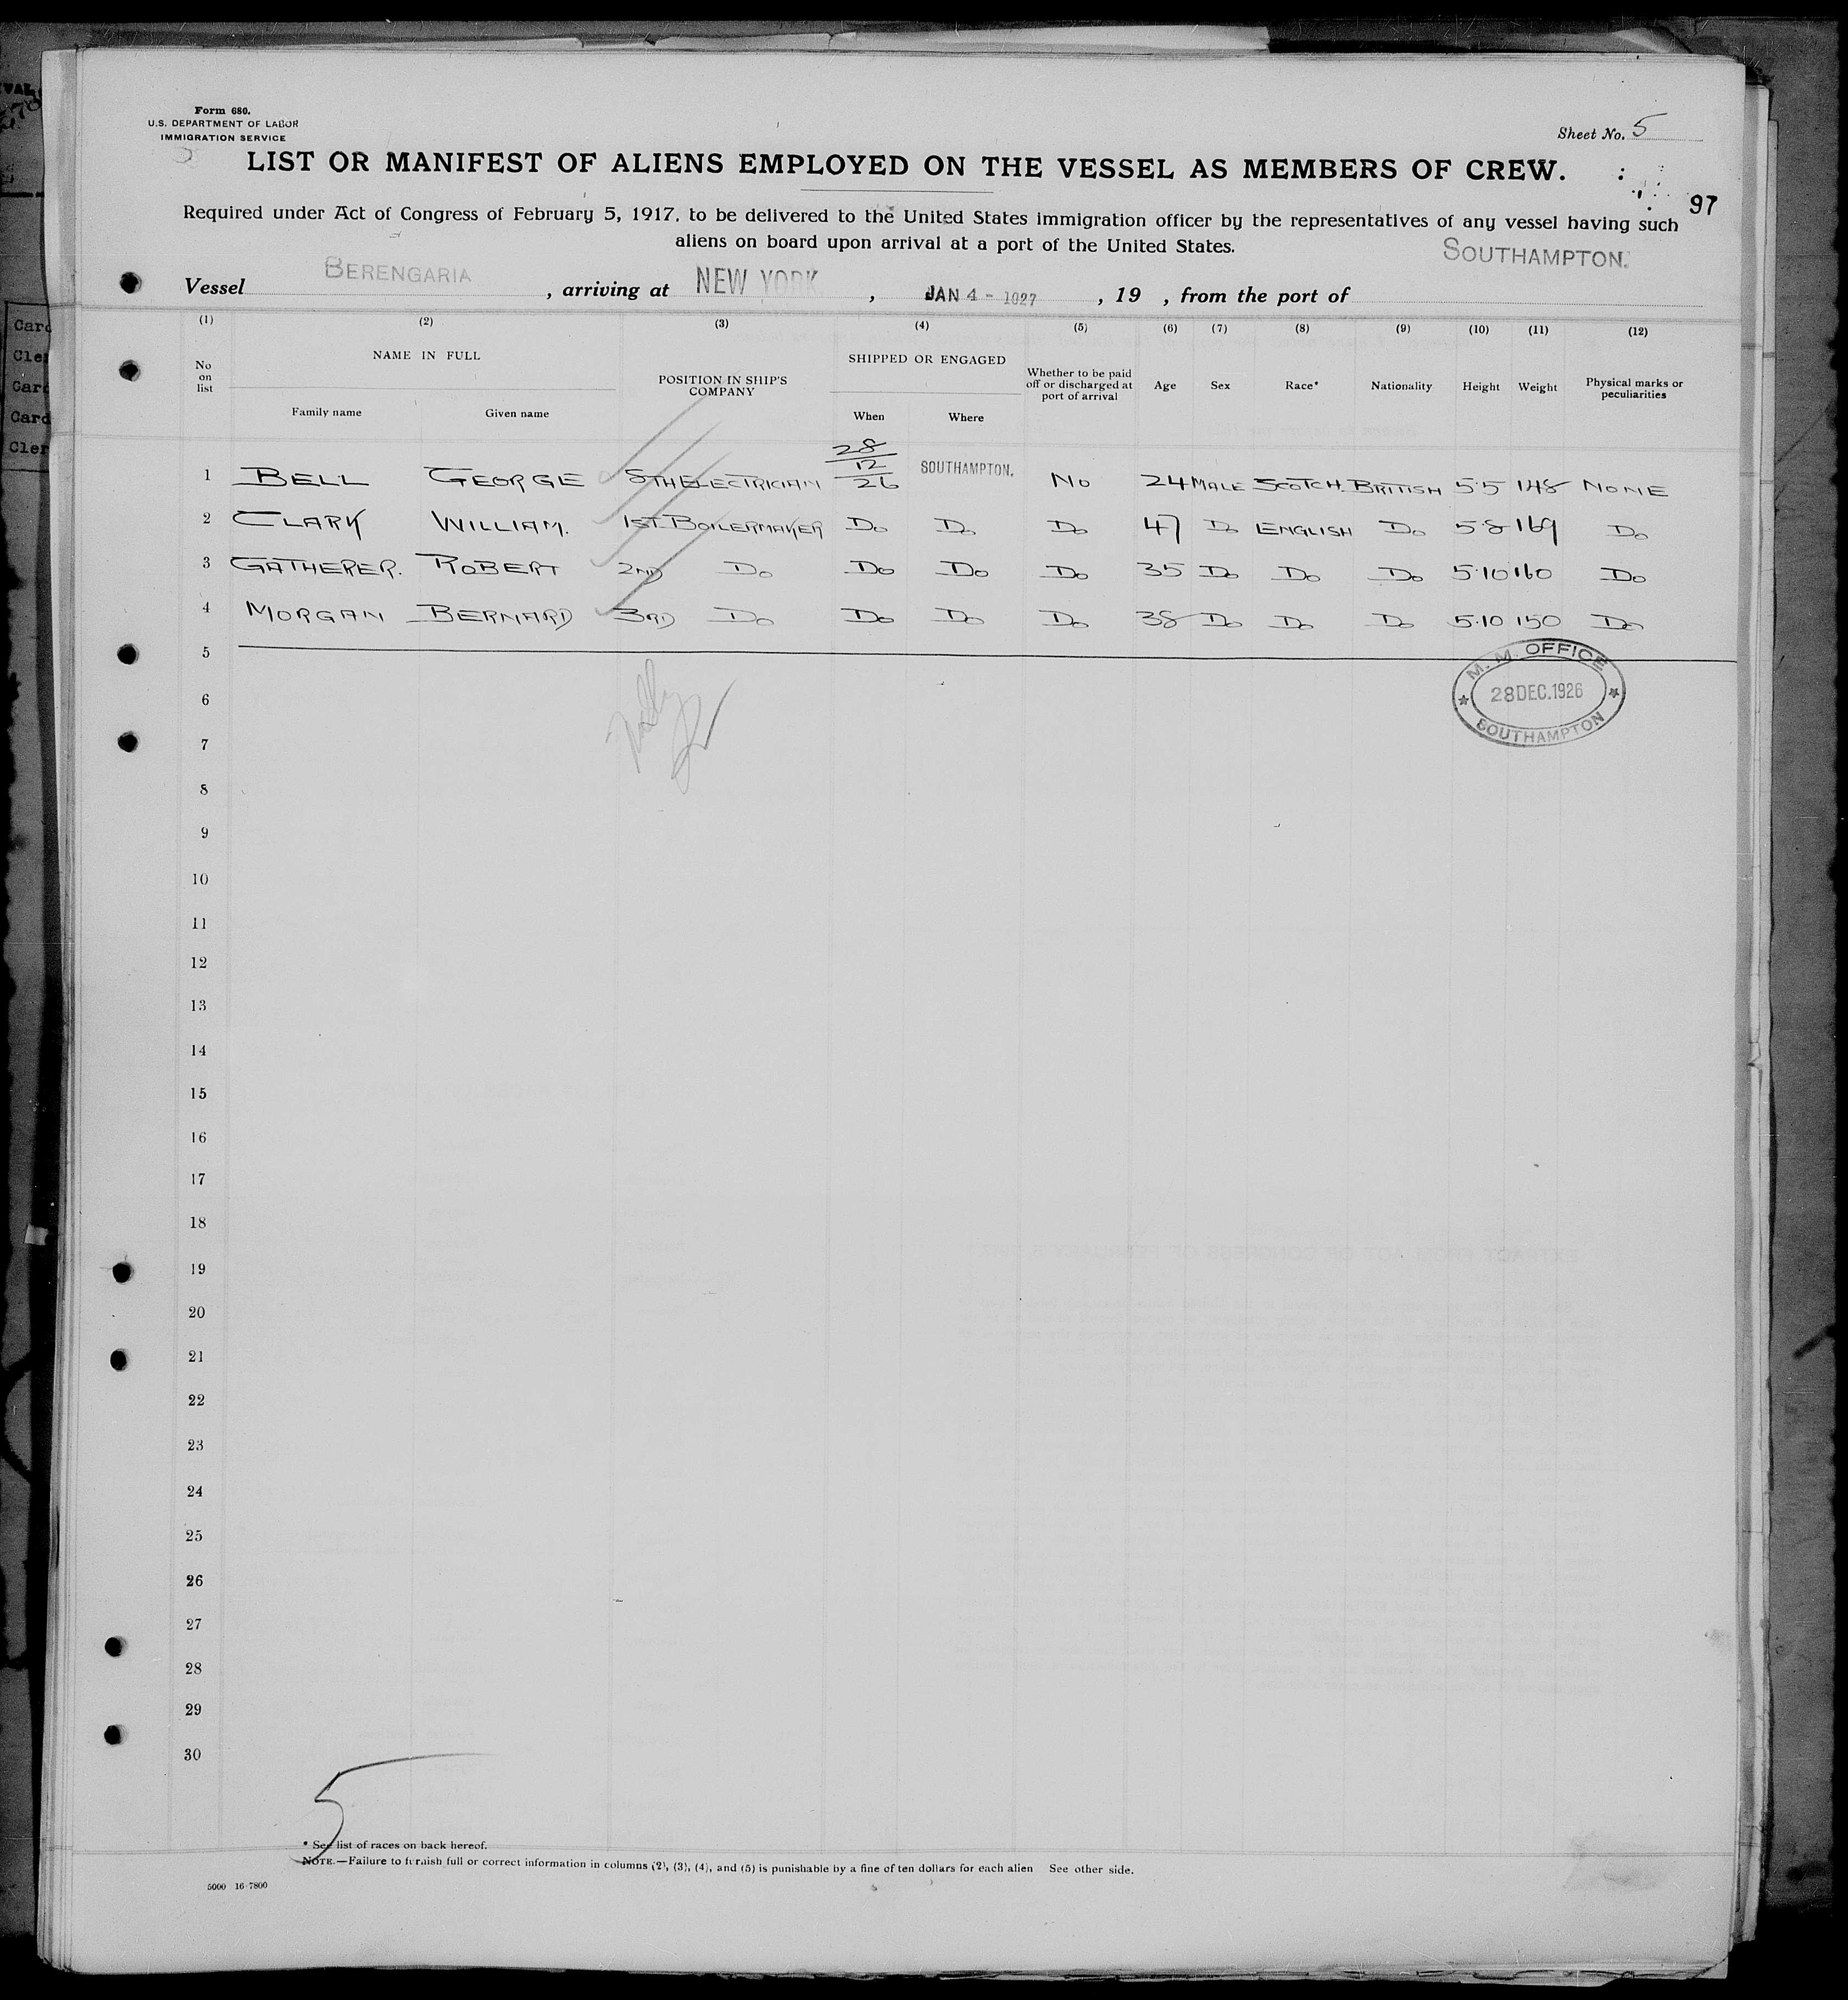 Form 680.
U.S. DEPARTMENT OF LABOR
IMMIGRATION SERVICE
Sheet No. 5
LIST OR MANIFEST OF ALIENS EMPLOYED ON THE VESSEL AS MEMBERS OF CREW.
97
Required under Act of Congress of February 5, 1917, to be delivered to the United States immigration officer by the representatives of any vessel having such
aliens on board upon arrival at a port of the United States.
Vessel BERENGARIA , arriving at NEW YORK , JAN 4 - 1927 , 19 , from the port of SOUTHAMPTON.
(1) (2) (3) (4) (5) (6) (7) (8) (9) (10) (11) (12)
No on list NAME IN FULL Family name Given name POSITION IN SHIP'S COMPANY SHIPPED OR ENGAGED When Where Whether to be paid off or discharged at port of arrival Age Sex Race* Nationality Height Weight Physical marks or peculiarities
1 BELL GEORGE 8TH ELECTRICIAN 28/12/26 SOUTHAMPTON. No 24 MALE SCOTCH. BRITISH 5.5 148 NONE
2 CLARK WILLIAM. 1ST BOILERMAKER Do Do Do 47 Do ENGLISH Do 5.8 169 Do
3 GATHERER. ROBERT 2ND Do Do Do Do 35 Do Do Do 5.10 160 Do
4 MORGAN BERNARD 3RD Do Do Do Do 38 Do Do Do 5.10 150 Do
5
M. M. OFFICE
28 DEC. 1926
SOUTHAMPTON
6
7
8
9
10
11
12
13
14
15
16
17
18
19
20
21
22
23
24
25
26
27
28
29
30
5
* See list of races on back hereof.
NOTE.—Failure to furnish full or correct information in columns (2), (3), (4), and (5) is punishable by a fine of ten dollars for each alien See other side.
5000 16-7800
Card
Cler
Card
Card
Cler